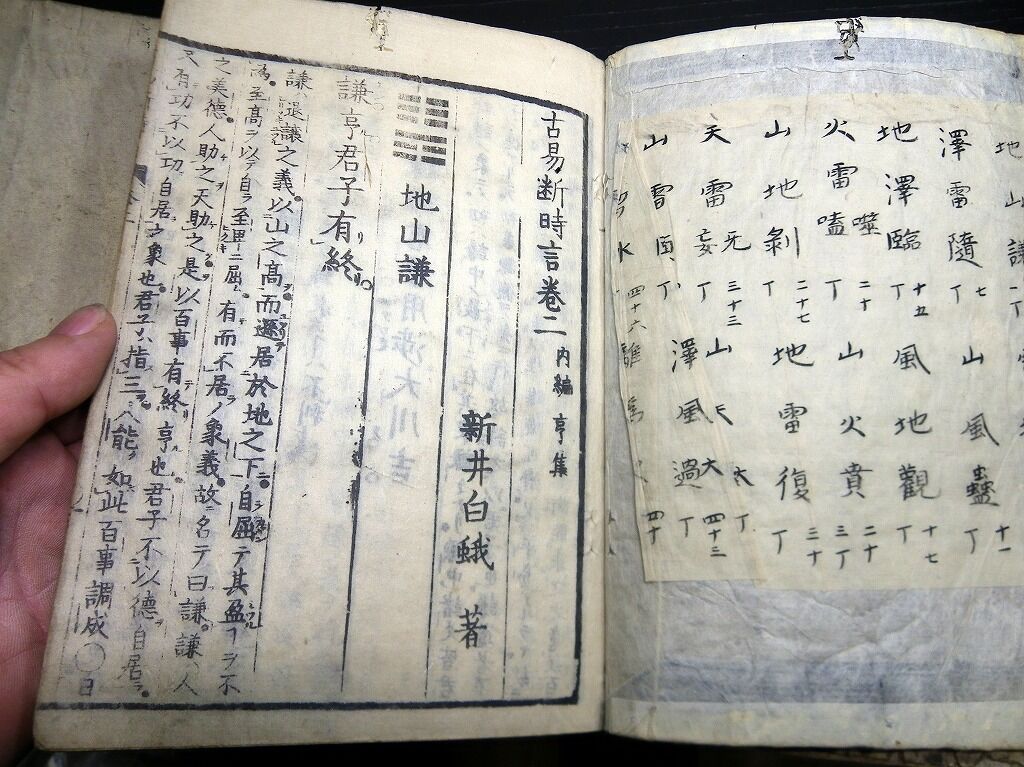 地山謙
澤雷隨 丁七
山風蠱 丁十一
地澤臨 丁十五
風地觀 丁十七
火雷噬嗑 丁二十
山火賁 丁二十三
山地剝 丁二十七
地雷復 丁三十
天雷无妄 丁三十三
山天大
山雷頤 丁四十
澤風大過 丁四十三
四十六
古易断時言卷二 内編 亨集
新井白蛾 著
地山謙
謙亨君子有終リ。
謙ハ退讓之義。以山之高而遜居於地之下ニ。自屈テ其盈フラ不
為。至高ヲ以テ自ラ至卑ニ屈。有而不居ノ象義。故ニ名テ曰謙。謙ハ人
之美德。人助之天助之。是以百事有終亨也。君子不以德自居ラ。
又有功不以功自居之象也。君子ハ指三ヲ。八能ク如此百事調成○曰